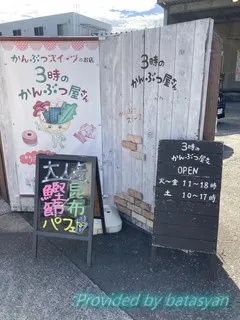 かんぶつスイーツのお店
3時の
かんぶつ屋さん
3時の
かんぶつ屋さん
大人気
鰹節 昆布
パフェ
3時の
かんぶつ屋さん
OPEN
火〜金 11〜18時
土 10〜17時
Provided by batasyan